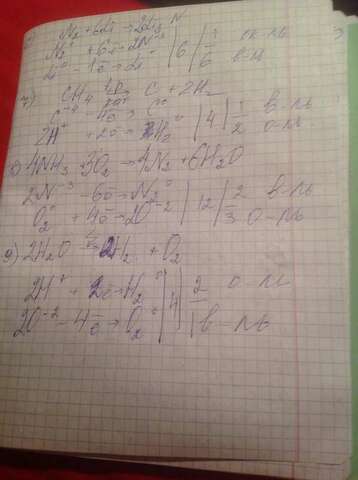 N₂ + 6Li → 2Li₃N
N₂⁰ + 6ē → 2N⁻³ | 6 | 1 ок-ль
Li⁰ - 1ē → Li⁺ | 6 в-ль
7) CH₄ → C + 2H₂
C⁻⁴ - 4ē → C⁰ | 4 | 1 в-ль
2H⁺ + 2ē → H₂⁰ | 2 о-ль
8) 4NH₃ + 3O₂ → 4N₂ + 6H₂O
2N⁻³ - 6ē → N₂⁰ | 12 | 2 в-ль
O₂⁰ + 4ē → 2O⁻² | 3 о-ль
9) 2H₂O → 2H₂ + O₂
2H⁺ + 2ē → H₂⁰ | 4 | 2 о-ль
2O⁻² - 4ē → O₂⁰ | 1 в-ль